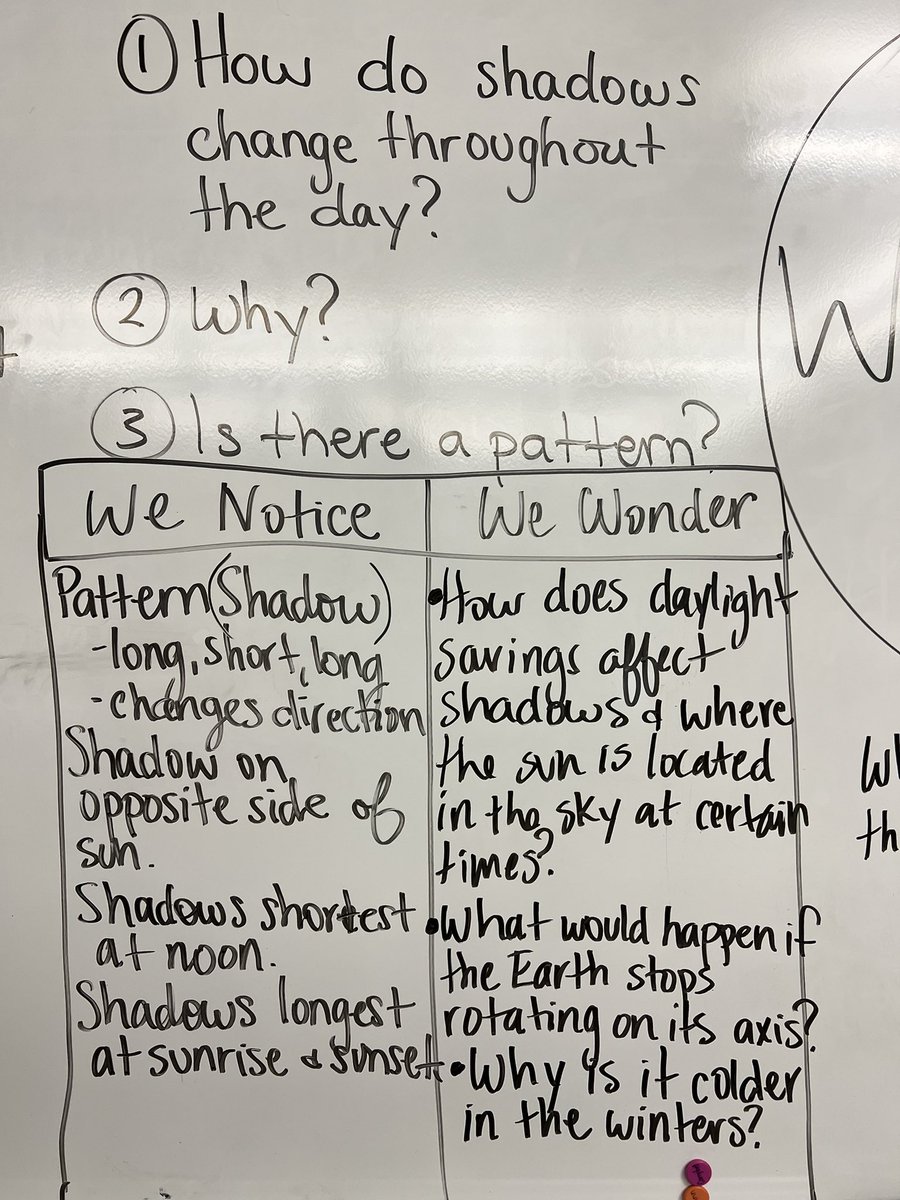 ① How do shadows
change throughout
the day?
② Why?
③ Is there a pattern?
We Notice
Pattern (Shadow)
-long, short, long
-changes direction
Shadow on
opposite side of
sun.
Shadows shortest
at noon.
Shadows longest
at sunrise & sunset
We Wonder
•How does daylight
savings affect
shadows & where
the sun is located
in the sky at certain
times?
•What would happen if
the Earth stops
rotating on its axis?
•Why is it colder
in the winters?
W
Wh
th